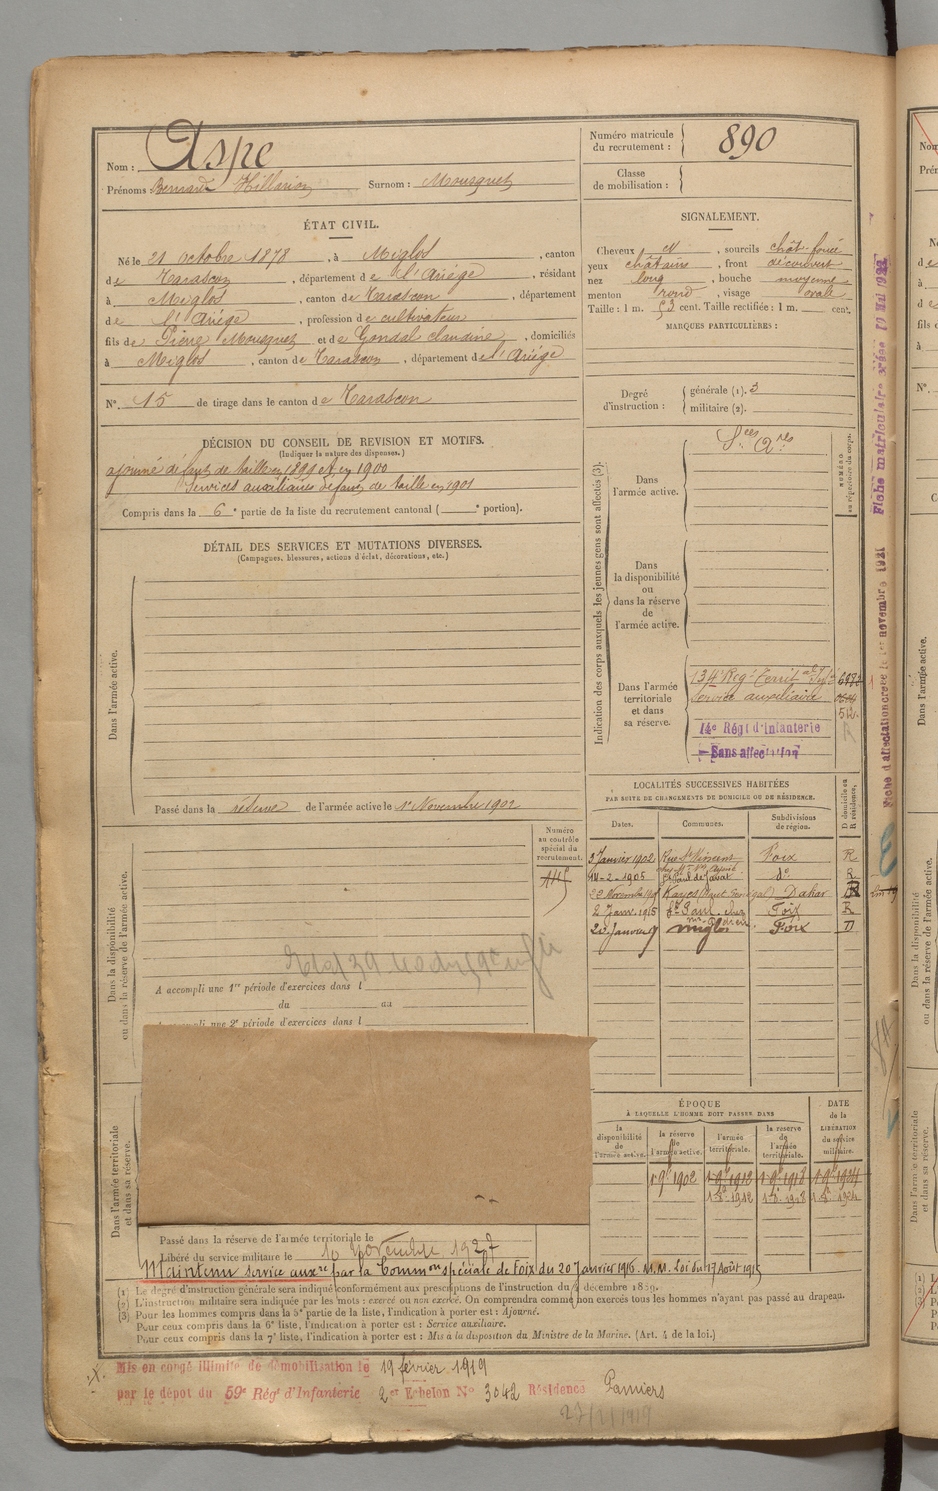 Nom : Aspe
Prénoms Bernard Hillarion Surnom : Mousquet
Numéro matricule du recrutement : 890
Classe de mobilisation :
ÉTAT CIVIL.
Né le 21 octobre 1878, à Miglos, canton
de Tarascon, département de l'Ariège, résidant
à Miglos, canton de Tarascon, département
de l'Ariège, profession de cultivateur
fils de Pierre Mousquet et de Gondal claudine, domiciliés
à Miglos, canton de Tarascon, département de l'Ariège
N° 15 de tirage dans le canton de Tarascon
SIGNALEMENT.
Cheveux et, sourcils chât. foncé
yeux châtains, front découvert
nez long, bouche moyenne
menton rond, visage ovale
Taille : 1 m. 53 cent. Taille rectifiée : 1 m. cent.
MARQUES PARTICULIÈRES :
Degré d'instruction : générale (1). 3
militaire (2).
DÉCISION DU CONSEIL DE REVISION ET MOTIFS.
(Indiquer la nature des dispenses.)
ajourné défaut de taille en 1899 et en 1900
Services auxiliaires défaut de taille en 1901
Compris dans la 6e partie de la liste du recrutement cantonal ( e portion).
DÉTAIL DES SERVICES ET MUTATIONS DIVERSES.
(Campagnes, blessures, actions d'éclat, décorations, etc.)
Dans l'armée active.
Passé dans la réserve de l'armée active le 1er Novembre 1902
Indication des corps auxquels les jeunes gens sont affectés (3).
NUMÉRO au répertoire du corps.
Dans l'armée active.
Sces Ares
Dans la disponibilité ou dans la réserve de l'armée active.
Dans l'armée territoriale et dans sa réserve.
134e Regt Territ
Service auxiliaire
512
14e Régt d'Infanterie
Sans affectation
LOCALITÉS SUCCESSIVES HABITÉES
PAR SUITE DE CHANGEMENTS DE DOMICILE OU DE RÉSIDENCE.
Dates. Communes. Subdivisions de région. D domicile ou R résidence.
3 Janvier 1902 Rue St Vincent Foix R
14-2-1905 St Paul de Jarrat do R
Kayes Dakar R
2 Janv. 1915 St Paul, chez Foix R
Miglos Foix D
Numéro au contrôle spécial du recrutement.
Dans la disponibilité ou dans la réserve de l'armée active.
A accompli une 1re période d'exercices dans l
du au
accompli une 2e période d'exercices dans l
Dans l'armée territoriale et dans sa réserve.
ÉPOQUE
À LAQUELLE L'HOMME DOIT PASSER DANS
la disponibilité de l'armée active. la réserve de l'armée active. l'armée territoriale. la réserve de l'armée territoriale. DATE de la LIBÉRATION du service militaire.
1 9bre 1902 1 9bre 1912 1 9bre 1918 1 9bre 1924
1-8-1912 1-8-1918 1-8-1924
Passé dans la réserve de l'armée territoriale le
Libéré du service militaire le 10 Novembre 1927
Maintenu service auxre par la Common spéciale de Foix du 20 Janvier 1916. M.M. Loi du 17 Août 1915
(1) Le degré d'instruction générale sera indiqué conformément aux prescriptions de l'instruction du 4 décembre 1889.
(2) L'instruction militaire sera indiquée par les mots : exercé ou non exercé. On comprendra comme non exercés tous les hommes n'ayant pas passé au drapeau.
(3) Pour les hommes compris dans la 5e partie de la liste, l'indication à porter est : Ajourné.
Pour ceux compris dans la 6e liste, l'indication à porter est : Service auxiliaire.
Pour ceux compris dans la 7e liste, l'indication à porter est : Mis à la disposition du Ministre de la Marine. (Art. 4 de la loi.)
Mis en congé illimité de démobilisation le 19 février 1919
par le dépôt du 59e Régt d'Infanterie 2e Echelon N° 3042 Résidence Pamiers
Fiche d'affectation créée le 1er novembre 1921
Fiche matriculaire créée